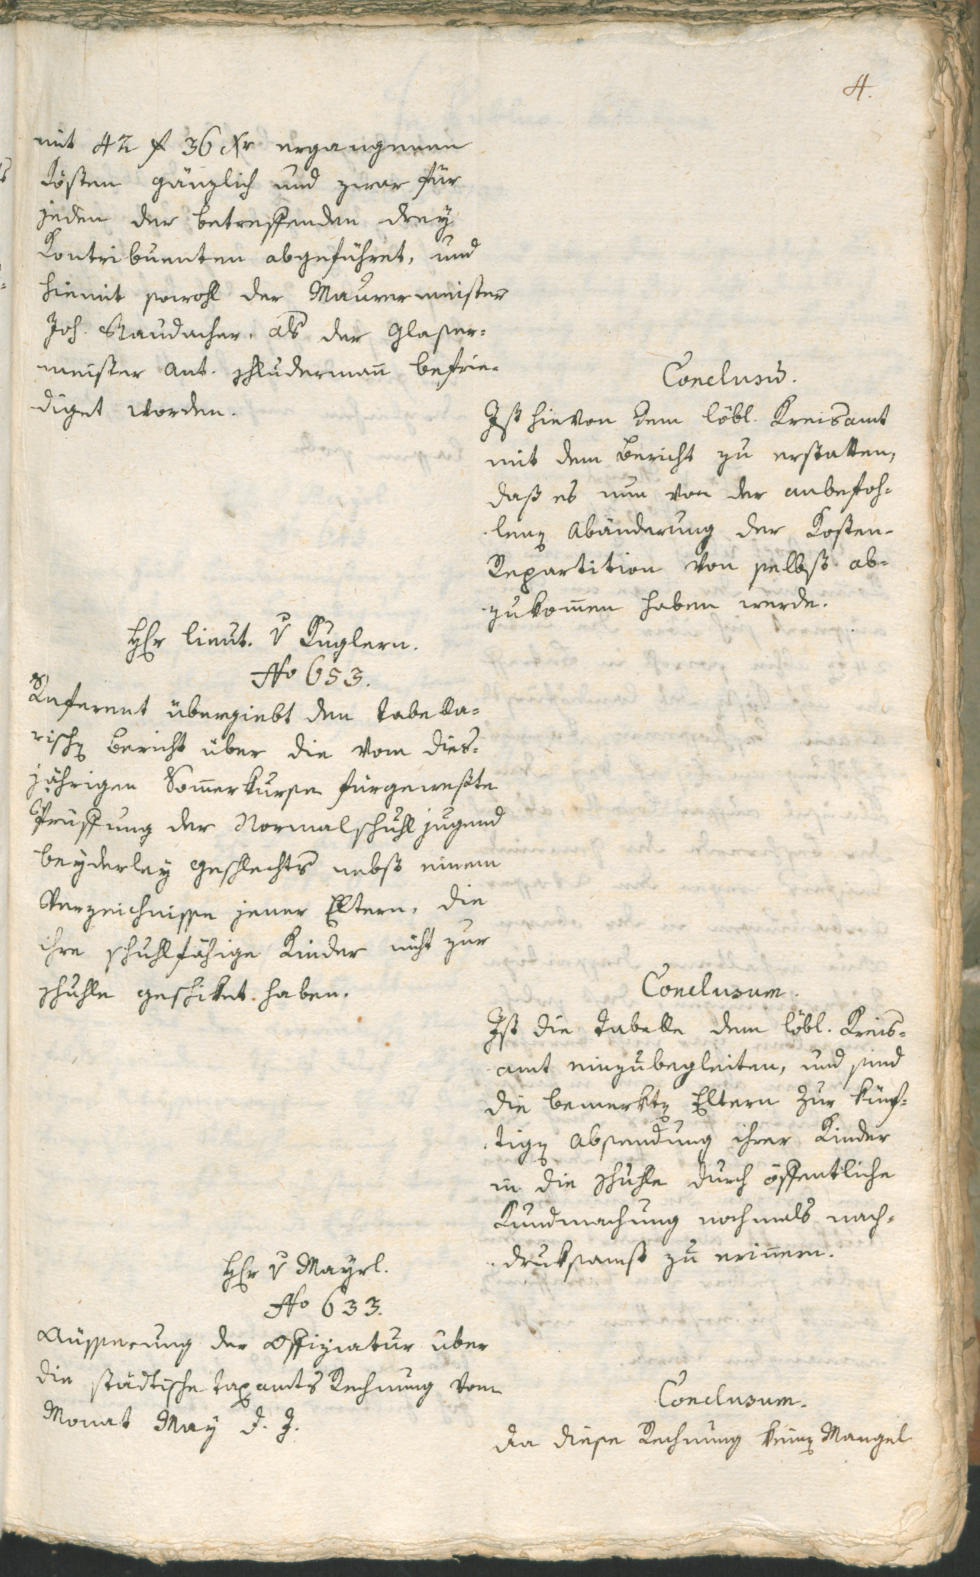 4.
mit 42 f 36 xr ergangenen
Kösten gänzlich und zwar für
jeden der betreffenden drey
Kontribuenten abgeführet, und
hiemit sowohl der Maurermeister
Joh. Staudacher, als der Glaser-
meister Ant. Schludermañ befrie-
diget worden.
Conclusũ.
Ist hievon dem löbl. Kreisamt
mit dem Bericht zu erstatten,
daß es nun von der anbefoh-
lenen Abänderung der Kosten-
Repartition von selbst ab-
zukom̄en haben werde.
Hr lieut. v Kuglern.
No 653.
Referent übergiebt den tabella-
rischen Bericht über die vom dies-
jährigen Som̄erkurse fürgeweste
Prüffung der Normalschuhl jugend
beyderley Geschlechts nebst einem
Verzeichnisse jener Eltern, die
ihre schuhlfähige Kinder nicht zur
Schuhle geschiket haben.
Conclusum.
Ist die Tabelle dem löbl. Kreis-
amt einzubegleiten, und sind
die bemerkten Eltern zur künf-
tigen Absendung ihrer Kinder
in die Schuhle durch öffentliche
Kundmachung nochmals nach-
druksamst zu erin̄ern.
Hr v Mayrl.
No 633.
Äusserung der Offiziatur über
die städtische Taxamts Rechnung vom
Monat May d. J.
Conclusum.
Da diese Rechnung keinen Mangel